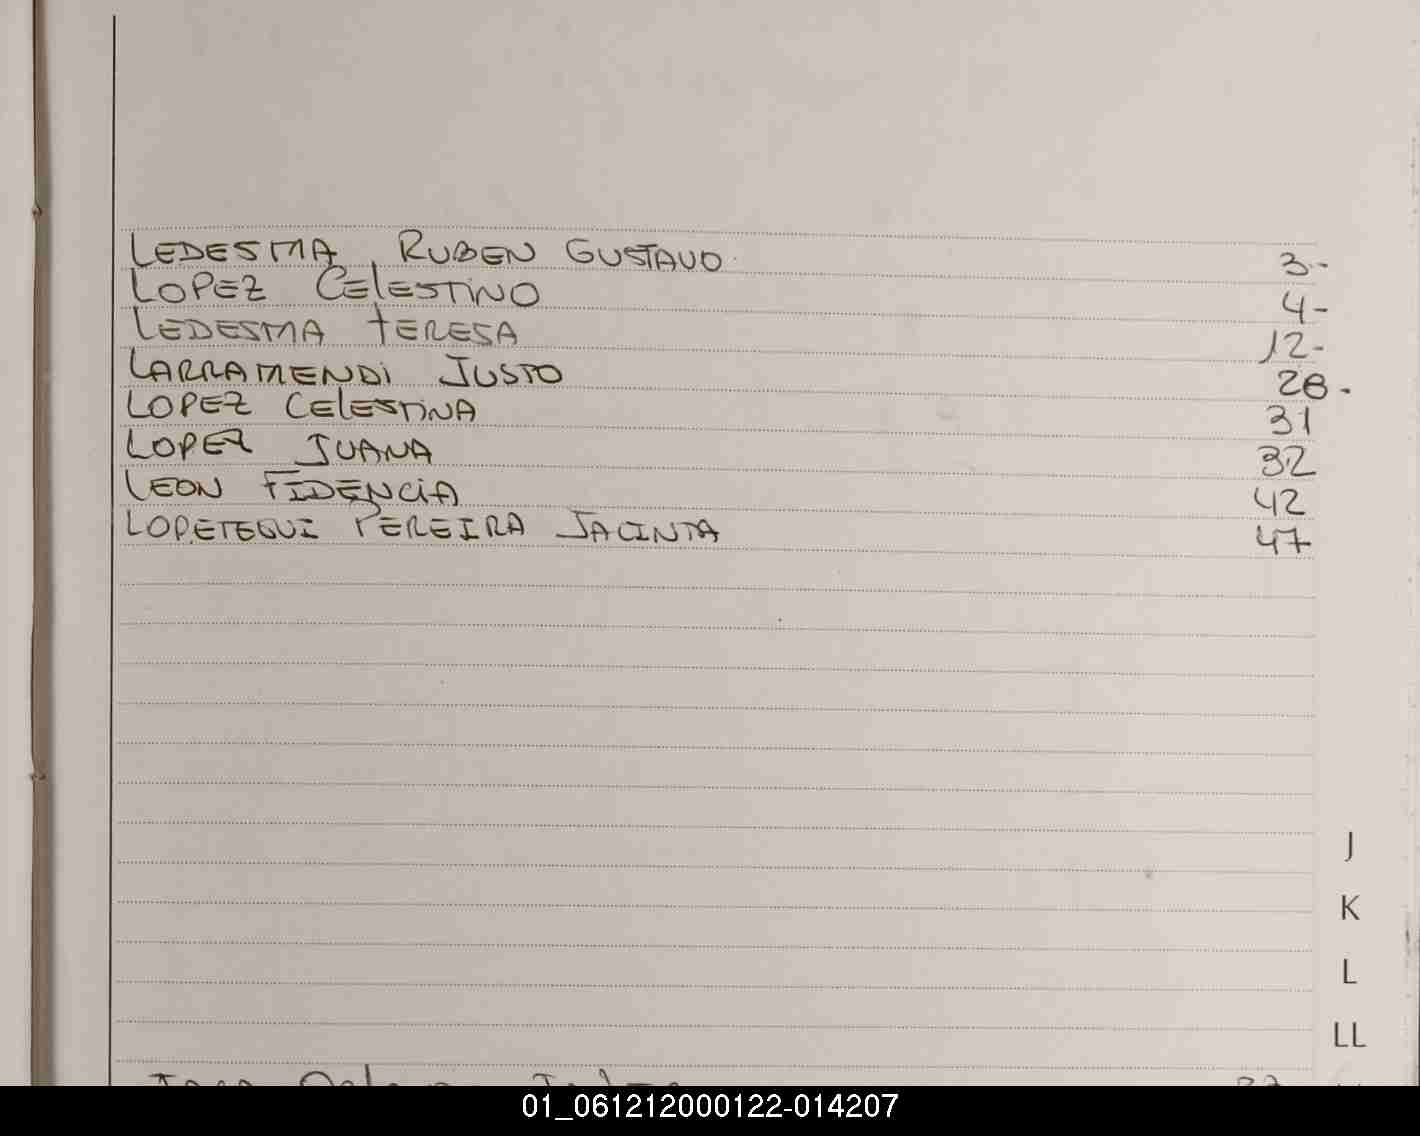 LEDESMA RUBEN GUSTAVO 3-
LOPEZ CELESTINO 4-
LEDESMA TERESA 12-
LARRAMENDI JUSTO 28.
LOPEZ CELESTINA 31
LOPEZ JUANA 32
LEON FIDENCIA 42
LOPETEGUI PEREIRA JACINTA 47
J
K
L
LL
01_061212000122-014207